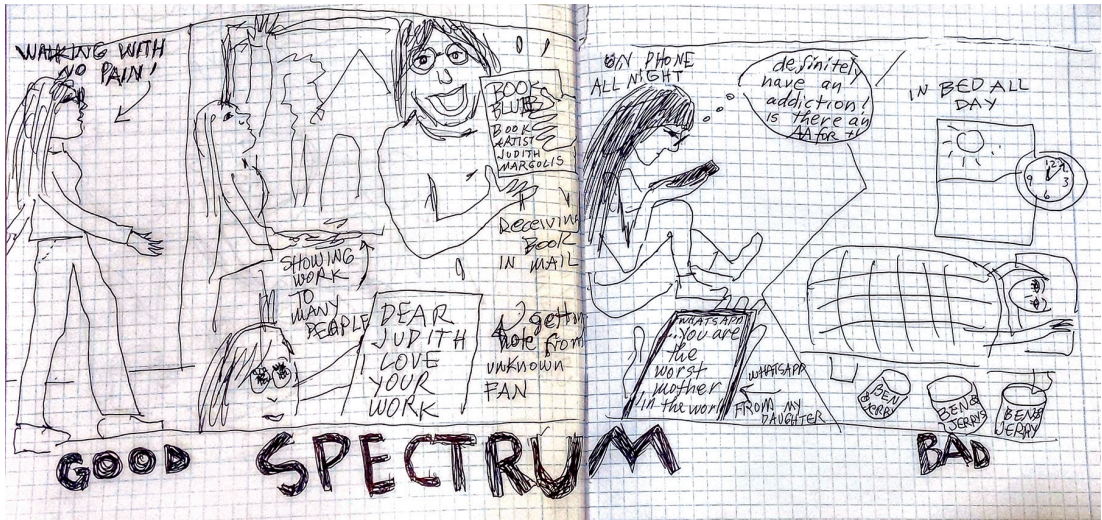 WALKING WITH
NO PAIN!
BOOK
BLURB
BOOK
ARTIST
JUDITH
MARGOLIS
RECEIVING
BOOK
IN MAIL
SHOWING
WORK
TO
MANY
PEOPLE
DEAR
JUDITH
LOVE
YOUR
WORK
getting
note from
unknown
FAN
ON PHONE
ALL NIGHT
definitely
have an
addiction!
is there an
AA for it
IN BED ALL
DAY
12
3
6
9
WHATSAPP
...you are
the
worst
mother
in the world
WHATSAPP
FROM MY
DAUGHTER
BEN &
JERRY
BEN &
JERRYS
BEN &
JERRY
GOOD SPECTRUM BAD